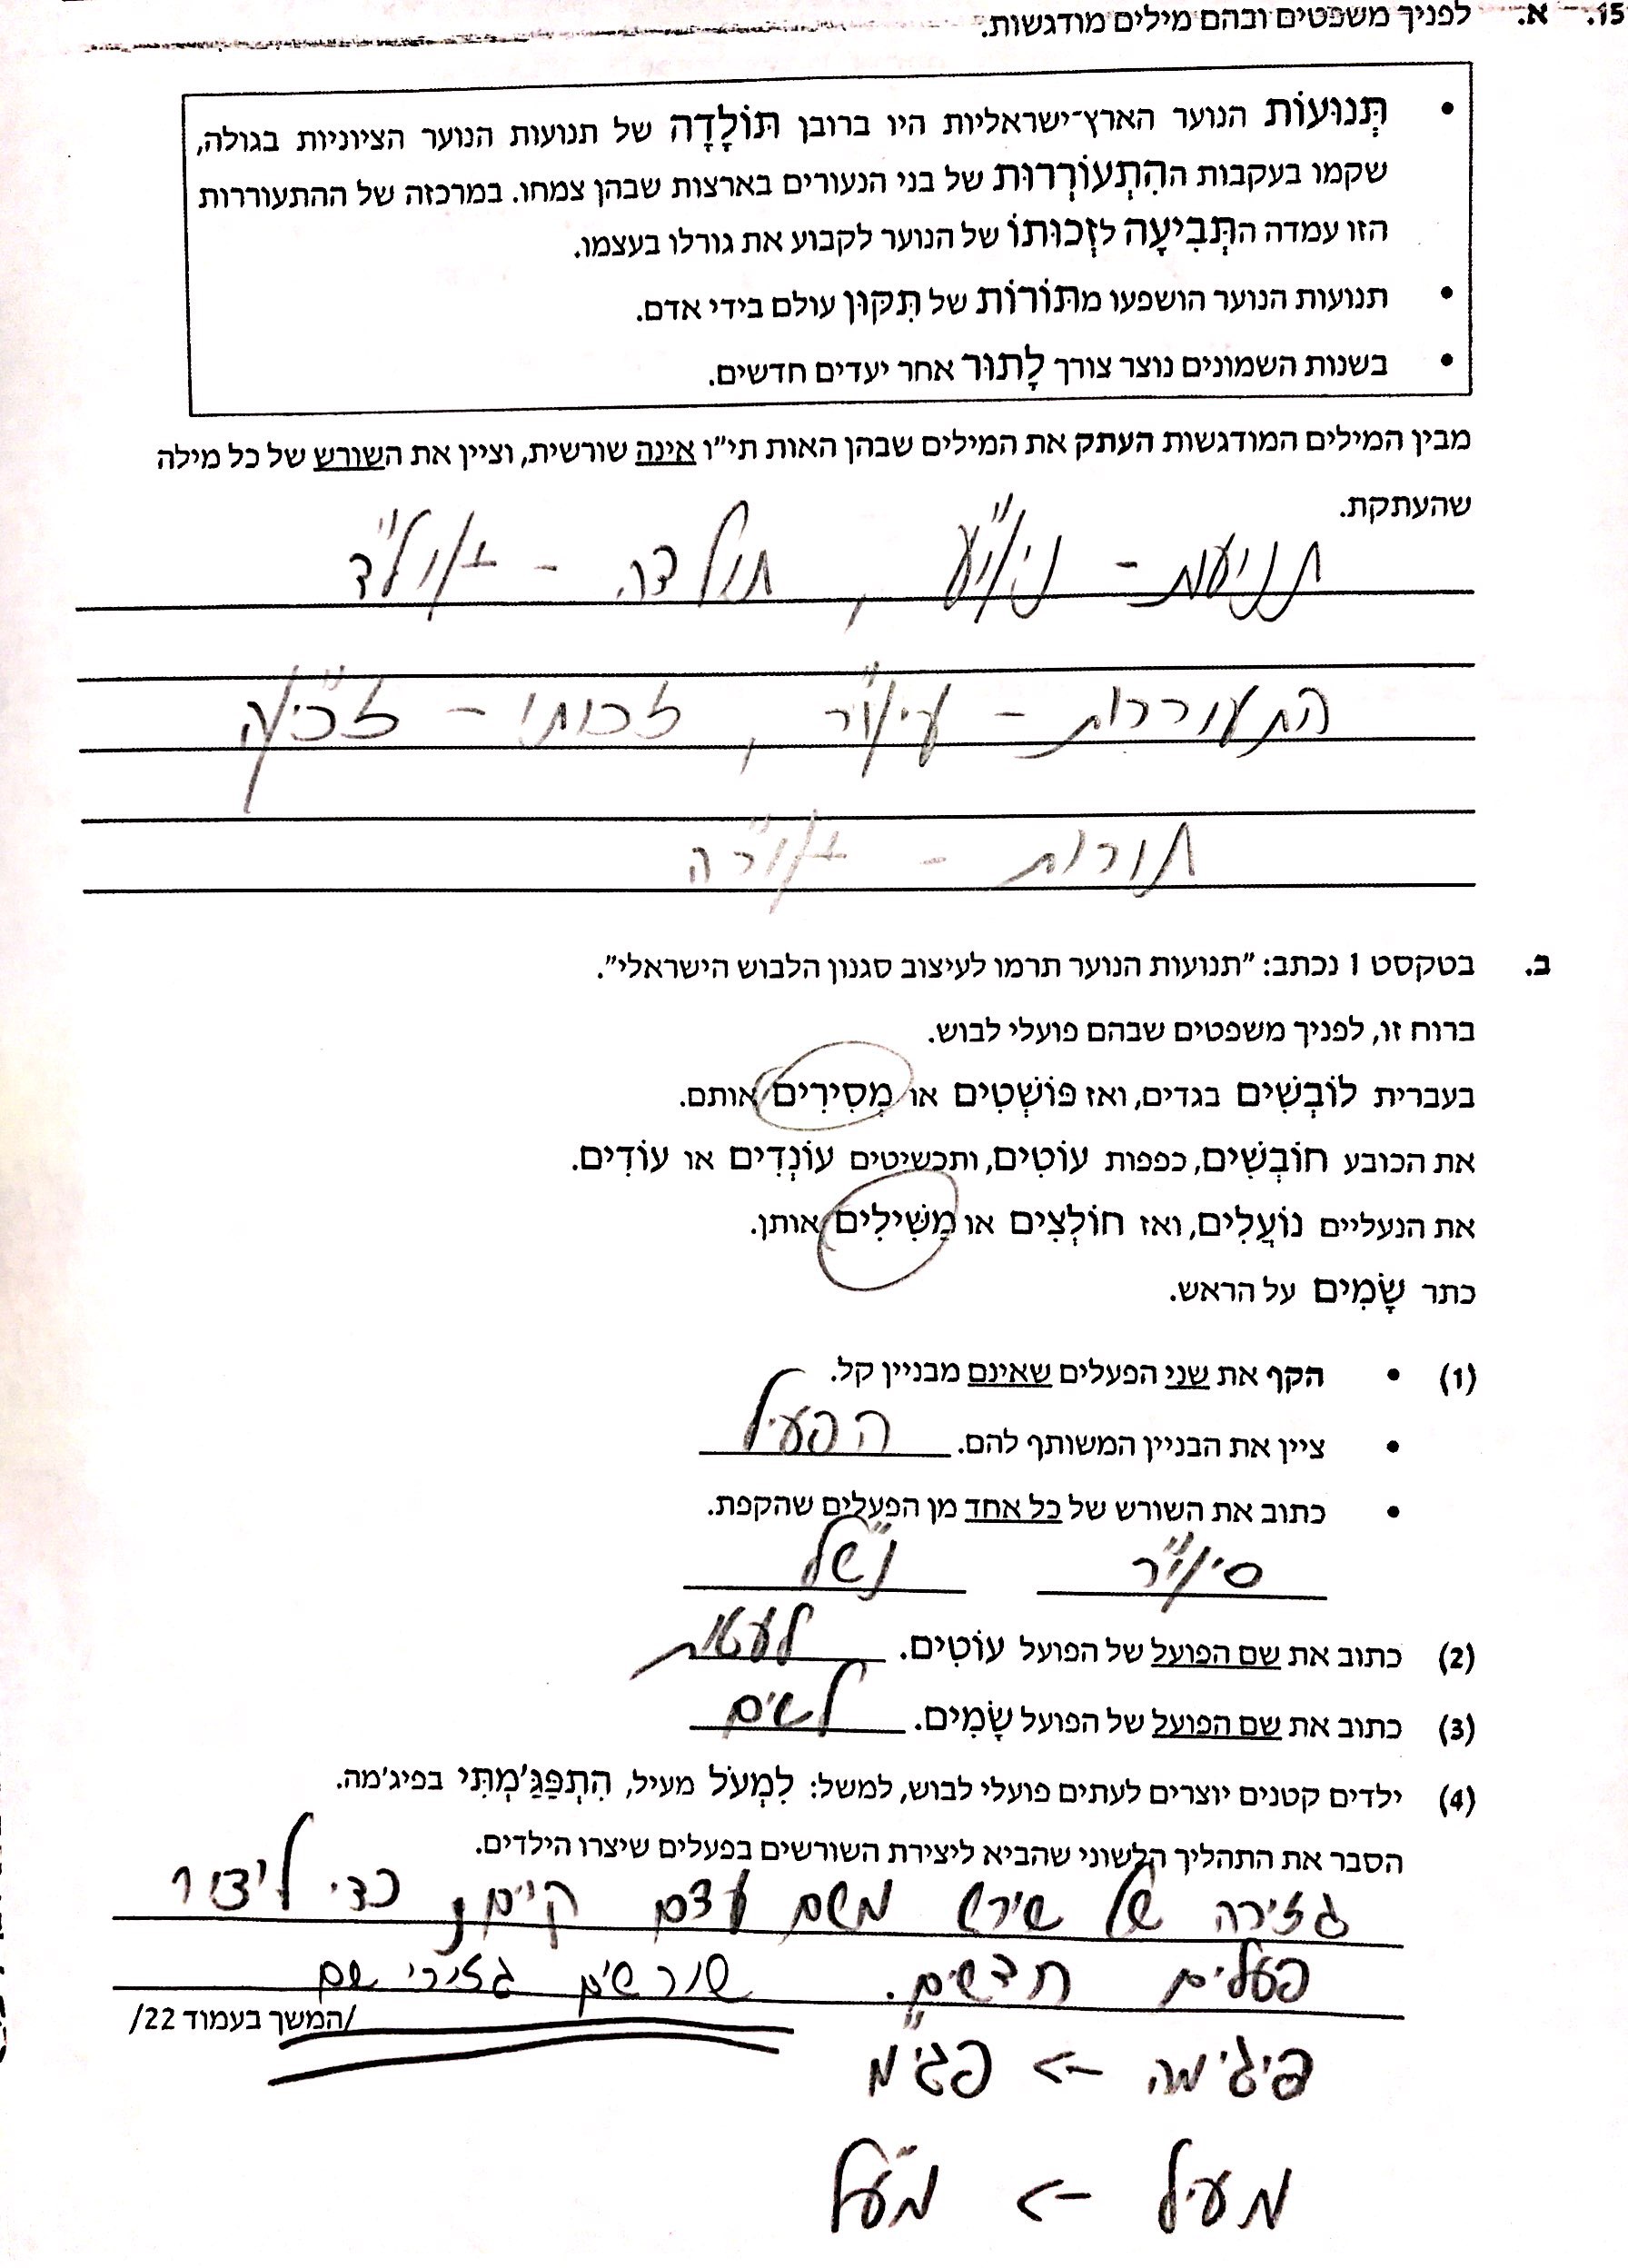 15. א. לפניך משפטים ובהם מילים מודגשות.
• תְּנוּעוֹת הנוער הארץ־ישראליות היו ברובן תּוֹלָדָה של תנועות הנוער הציוניות בגולה,
שקמו בעקבות הַהִתְעוֹרְרוּת של בני הנעורים בארצות שבהן צמחו. במרכזה של ההתעוררות
הזו עמדה התְּבִיעָה לזְכוּתוֹ של הנוער לקבוע את גורלו בעצמו.
• תנועות הנוער הושפעו מתּוֹרוֹת של תִּקּוּן עולם בידי אדם.
• בשנות השמונים נוצר צורך לָתוּר אחר יעדים חדשים.
מבין המילים המודגשות העתק את המילים שבהן האות תי"ו אינה שורשית, וציין את השורש של כל מילה
שהעתקת.
תנועות - נ/ו"ע , תולדה - א/ול"ד
התעוררות - ע/ו"ר , זכותו - זכ"י/ה
תורות - א/ור"ה
ב. בטקסט 1 נכתב: "תנועות הנוער תרמו לעיצוב סגנון הלבוש הישראלי".
ברוח זו, לפניך משפטים שבהם פועלי לבוש.
בעברית לוֹבְשִׁים בגדים, ואז פּוֹשְׁטִים או מְסִירִים אותם.
את הכובע חוֹבְשִׁים, כפפות עוֹטִים, ותכשיטים עוֹנְדִים או עוֹדִים.
את הנעליים נוֹעֲלִים, ואז חוֹלְצִים או מַשִּׁילִים אותן.
כתר שָׂמִים על הראש.
(1) • הקף את שני הפעלים שאינם מבניין קל.
• ציין את הבניין המשותף להם. הפעיל
• כתוב את השורש של כל אחד מן הפעלים שהקפת.
ס/ו"ר נש"ל
(2) כתוב את שם הפועל של הפועל עוֹטִים. לעטות
(3) כתוב את שם הפועל של הפועל שָׂמִים. לשים
(4) ילדים קטנים יוצרים לעתים פועלי לבוש, למשל: לִמְעֹל מעיל, הִתְפַּגַּ'מְתִּי בפיג'מה.
הסבר את התהליך הלשוני שהביא ליצירת השורשים בפעלים שיצרו הילדים.
גזירה של שורש משם עצם קיים כדי ליצור
פעלים חדשים. שורשים גזורי שם
/המשך בעמוד 22/
פיג'מה -> פג'"מ
מעיל -> מע"ל